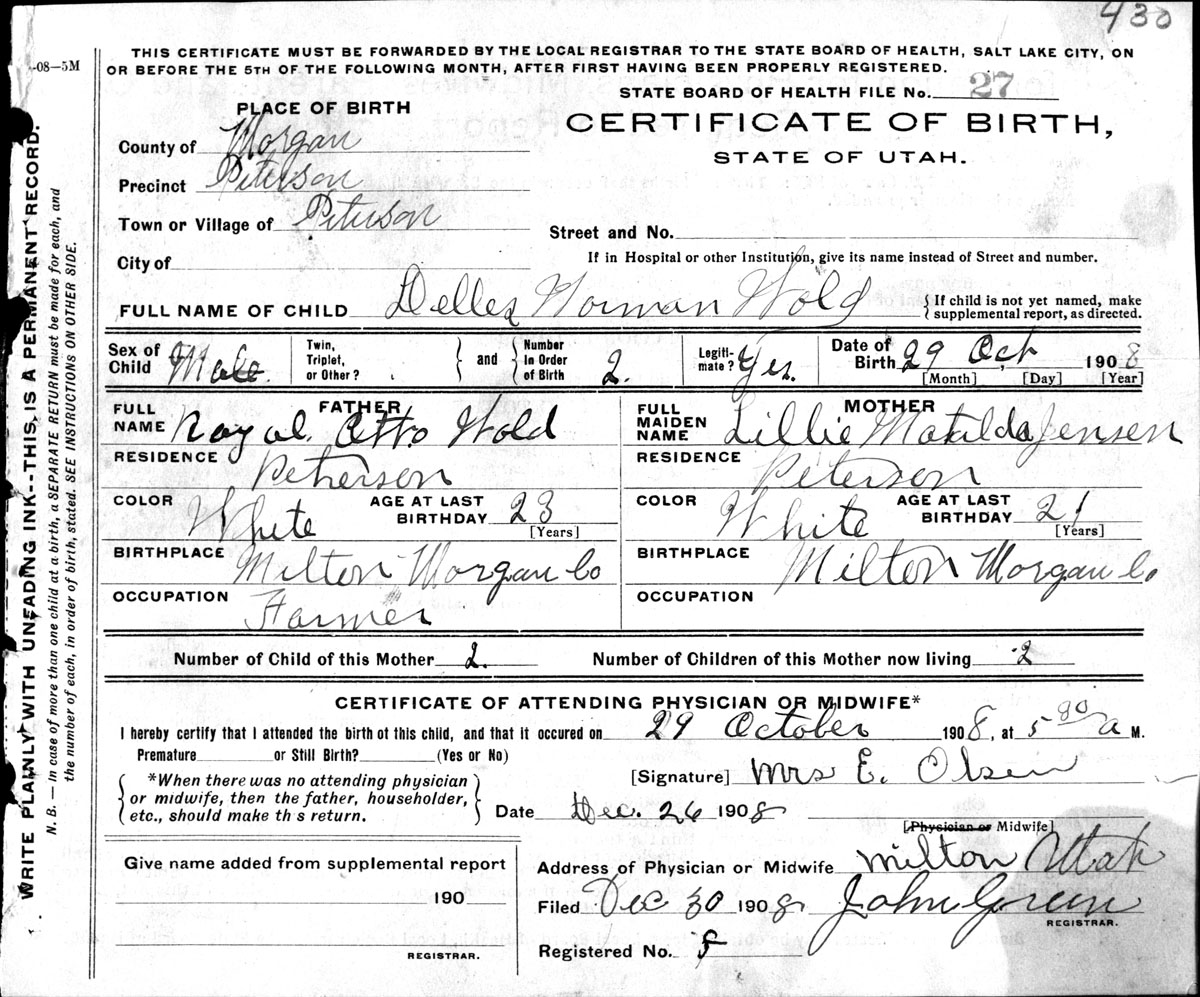 430
THIS CERTIFICATE MUST BE FORWARDED BY THE LOCAL REGISTRAR TO THE STATE BOARD OF HEALTH, SALT LAKE CITY, ON
OR BEFORE THE 5TH OF THE FOLLOWING MONTH, AFTER FIRST HAVING BEEN PROPERLY REGISTERED.
-08—5M
STATE BOARD OF HEALTH FILE No. 27
PLACE OF BIRTH
CERTIFICATE OF BIRTH,
STATE OF UTAH.
County of Morgan
Precinct Peterson
Town or Village of Peterson
Street and No.
City of
If in Hospital or other Institution, give its name instead of Street and number.
FULL NAME OF CHILD Delles Norman Wold
{If child is not yet named, make
supplemental report, as directed.
Sex of Child Male
Twin, Triplet, or Other?
and
Number in Order of Birth 2.
Legiti-mate? Yes.
Date of Birth 29 Oct, 1908
[Month] [Day] [Year]
FATHER
FULL NAME Royal Otto Wold
RESIDENCE Peterson
COLOR White
AGE AT LAST BIRTHDAY 23
[Years]
BIRTHPLACE Milton Morgan Co
OCCUPATION Farmer
MOTHER
FULL MAIDEN NAME Lillie Matilda Jensen
RESIDENCE Peterson
COLOR White
AGE AT LAST BIRTHDAY 21
[Years]
BIRTHPLACE Milton Morgan Co
OCCUPATION
Number of Child of this Mother 2.
Number of Children of this Mother now living 2
CERTIFICATE OF ATTENDING PHYSICIAN OR MIDWIFE*
I hereby certify that I attended the birth of this child, and that it occured on 29 October 1908, at 5 a M.
Premature or Still Birth? (Yes or No)
*When there was no attending physician
or midwife, then the father, householder,
etc., should make th s return.
[Signature] Mrs E. Olsen
Date Dec. 26 1908
[Physician or Midwife]
Give name added from supplemental report
190
REGISTRAR.
Address of Physician or Midwife Milton Utah
Filed Dec 30 1908 John Green
REGISTRAR.
Registered No.
WRITE PLAINLY WITH UNFADING INK--THIS IS A PERMANENT RECORD.
N. B. — In case of more than one child at a birth, a SEPARATE RETURN must be made for each, and
the number of each, in order of birth, stated. SEE INSTRUCTIONS ON OTHER SIDE.